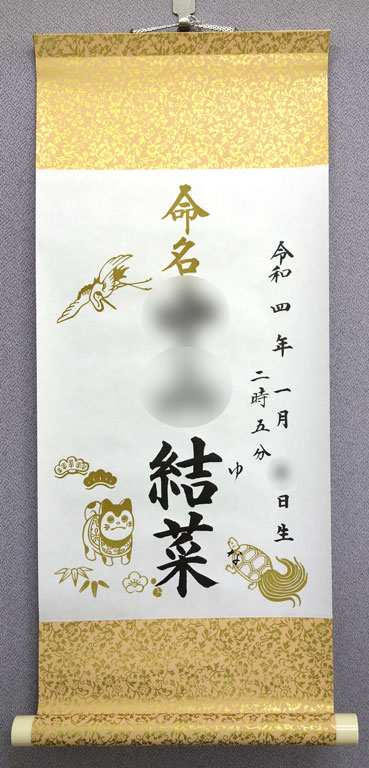 令和四年一月日生
二時五分
命名
結菜
ゆ
な